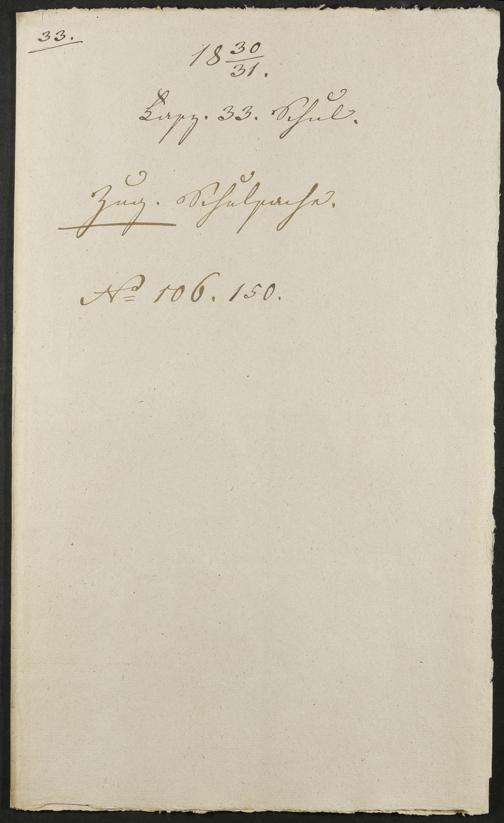 33.
18 30/31.
Kapp. 33. Schul.
Zug. Schulsache.
No 106. 150.